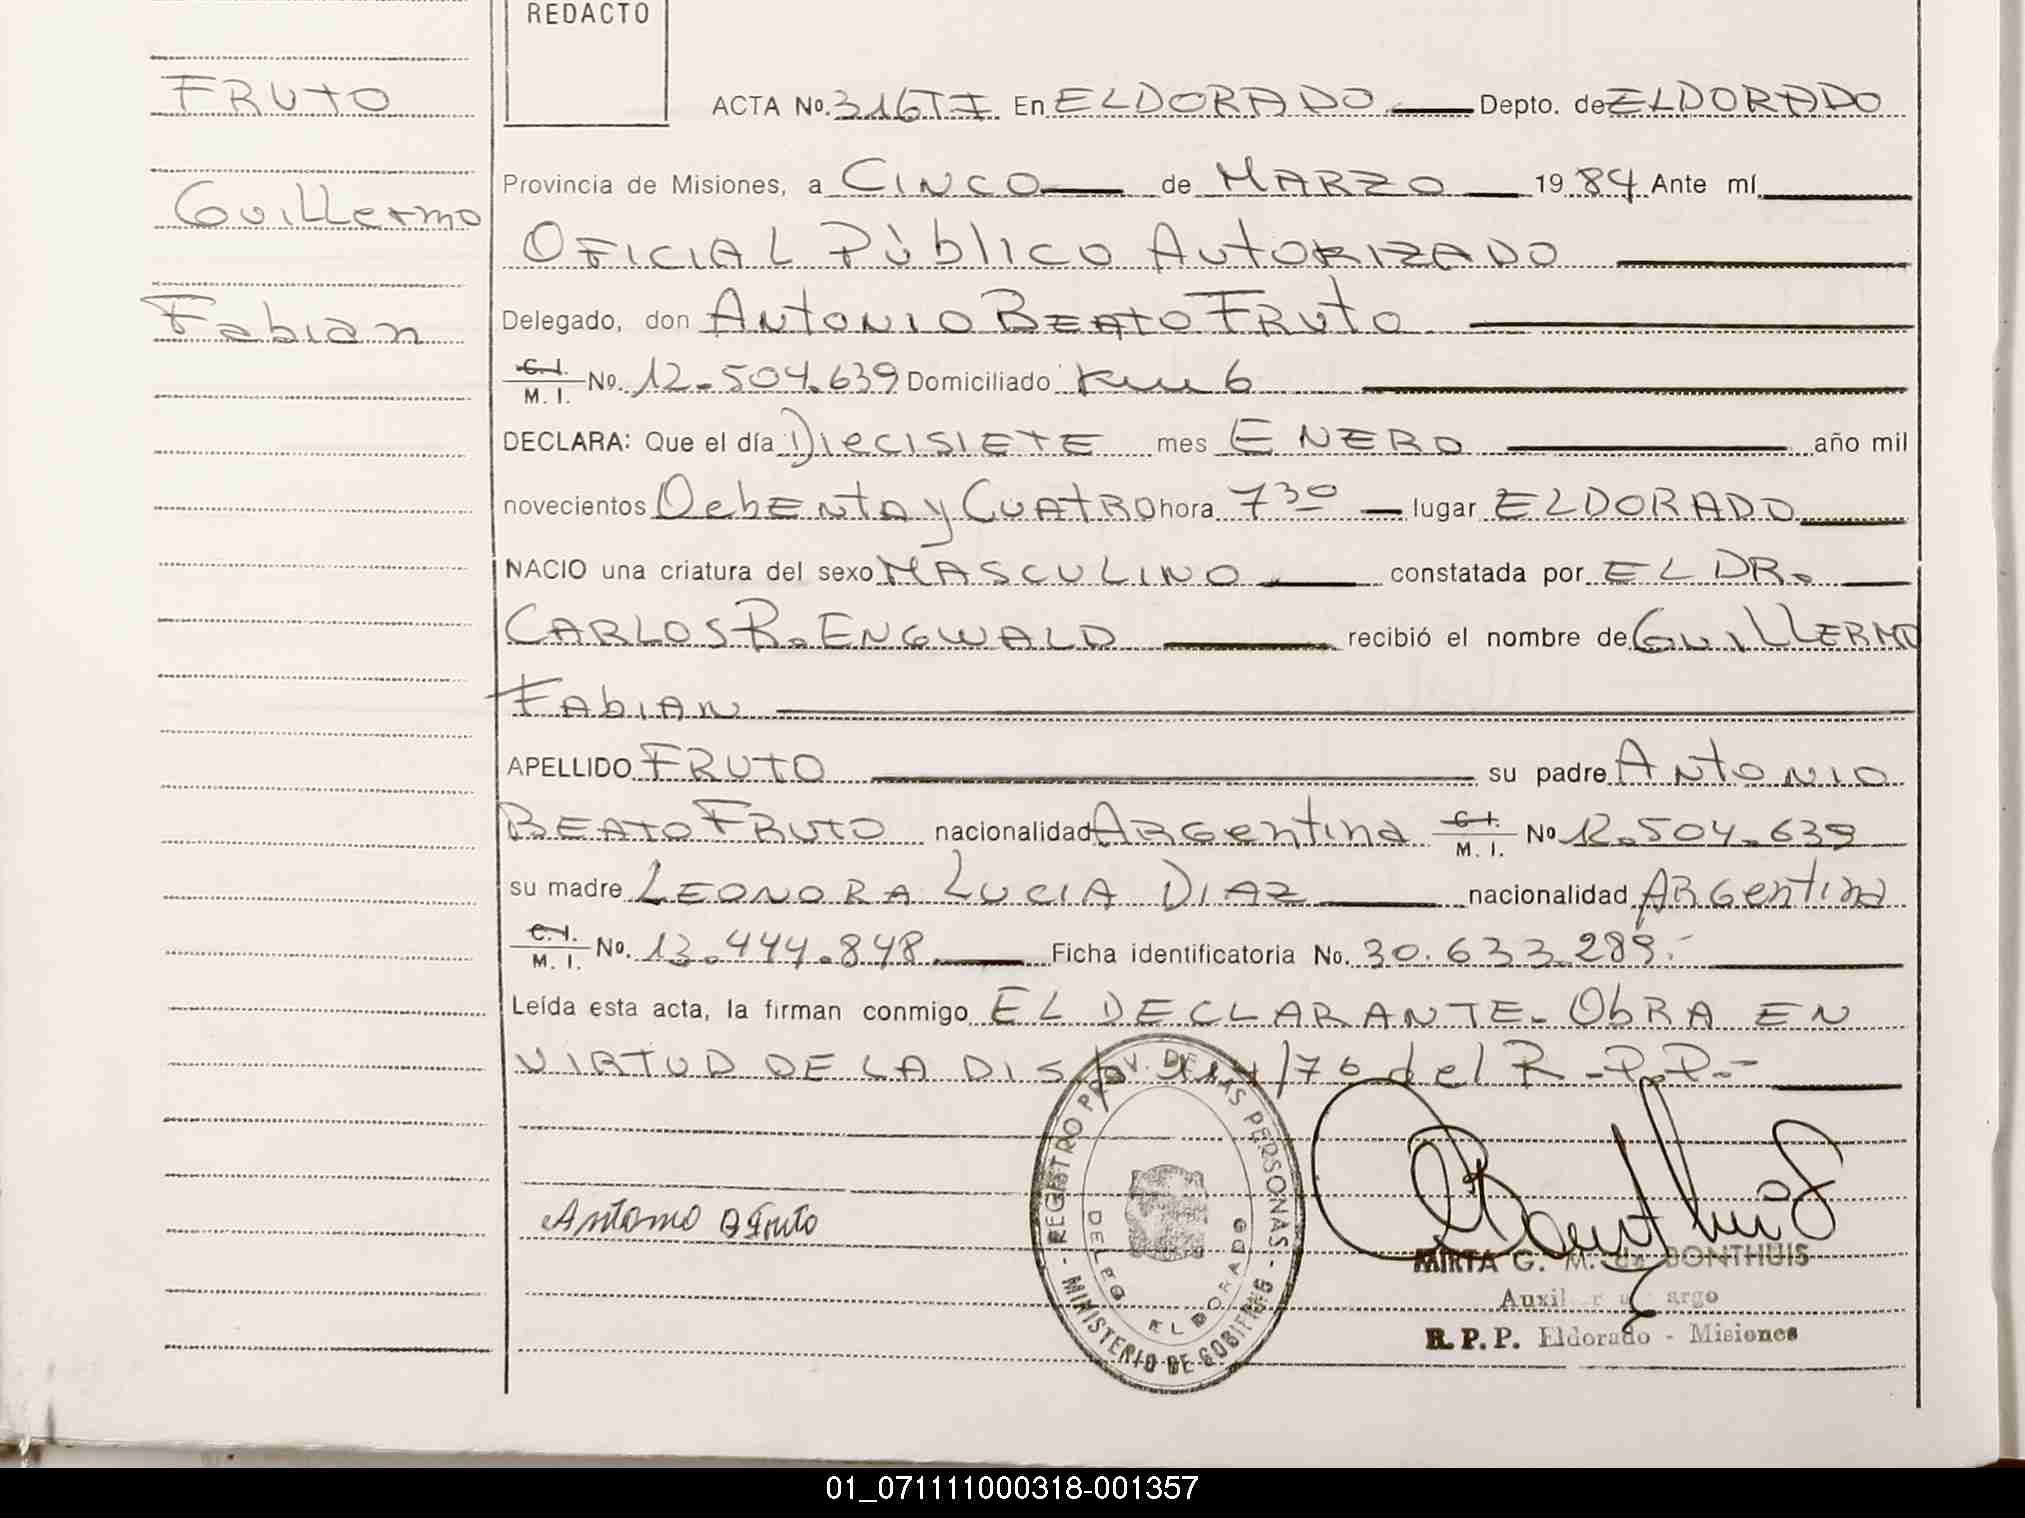 REDACTO
FRUTO
Guillermo
Fabian
ACTA No. 316TI En ELDORADO Depto. de ELDORADO
Provincia de Misiones, a CINCO de MARZO 1984 Ante mí
OFICIAL Público AutORIZADO
Delegado, don ANtONIO BEATO FRUtO
C.I. M. I. No. 12.504.639 Domiciliado km 6
DECLARA: Que el día DIECISIETE mes ENERO año mil
novecientos OchENta y CUATRO hora 7 30 lugar ELDORADO
NACIO una criatura del sexo MASCULINO constatada por EL DR.
CARLOS R. ENGWALD recibió el nombre de GUILLERMO
FAbIAN
APELLIDO FRUTO su padre ANtONIO
BEATO FRUTO nacionalidad ARGentina C.I. M. I. No 12.504.639
su madre LEONORA LUCIA DIAZ nacionalidad ARGentina
C.I. M. I. No. 13.444.848 Ficha identificatoria No. 30.633.289.-
Leída esta acta, la firman conmigo EL DECLARANTE. ObRA EN
VIRTUD DE LA DISp /76 del R.P.P.-
Antonio B Fruto
REGISTRO PROV. DE LAS PERSONAS - MINISTERIO DE GOBIERNO -
DELEG ELDORADO
MIRTA G. M. de BONTHUIS
Auxiliar a cargo
R.P.P. Eldorado - Misiones
01_071111000318-001357